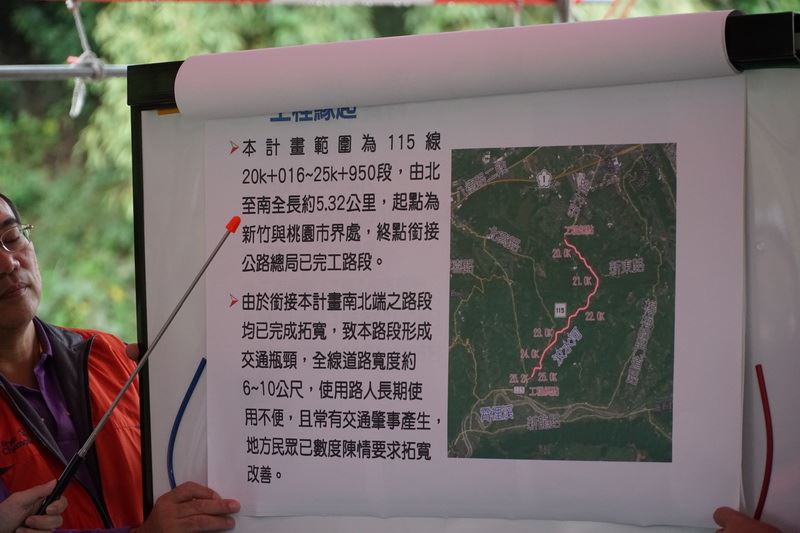 工程緣起
本計畫範圍為115線
20k+016~25k+950段，由北
至南全長約5.32公里，起點為
新竹與桃園市界處，終點銜接
公路總局已完工路段。
由於銜接本計畫南北端之路段
均已完成拓寬，致本路段形成
交通瓶頸，全線道路寬度約
6~10公尺，使用路人長期使
用不便，且常有交通肇事產生，
地方民眾已數度陳情要求拓寬
改善。
20.0K
21.0K
22.0K
115
23.0K
24.0K
25.0K
霄裡溪